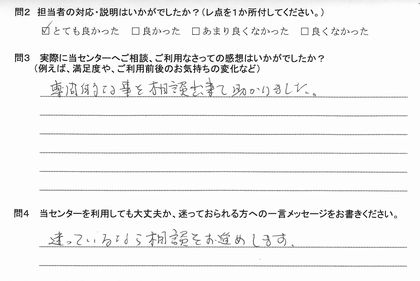 問2 担当者の対応・説明はいかがでしたか？(レ点を1か所付してください。)
☑とても良かった □良かった □あまり良くなかった □良くなかった
問3 実際に当センターへご相談、ご利用なさっての感想はいかがでしたか？
(例えば、満足度や、ご利用前後のお気持ちの変化など)
専門的な事を相談出来て助かりました。
問4 当センターを利用しても大丈夫か、迷っておられる方への一言メッセージをお書きください。
迷っているなら相談をお進めします。